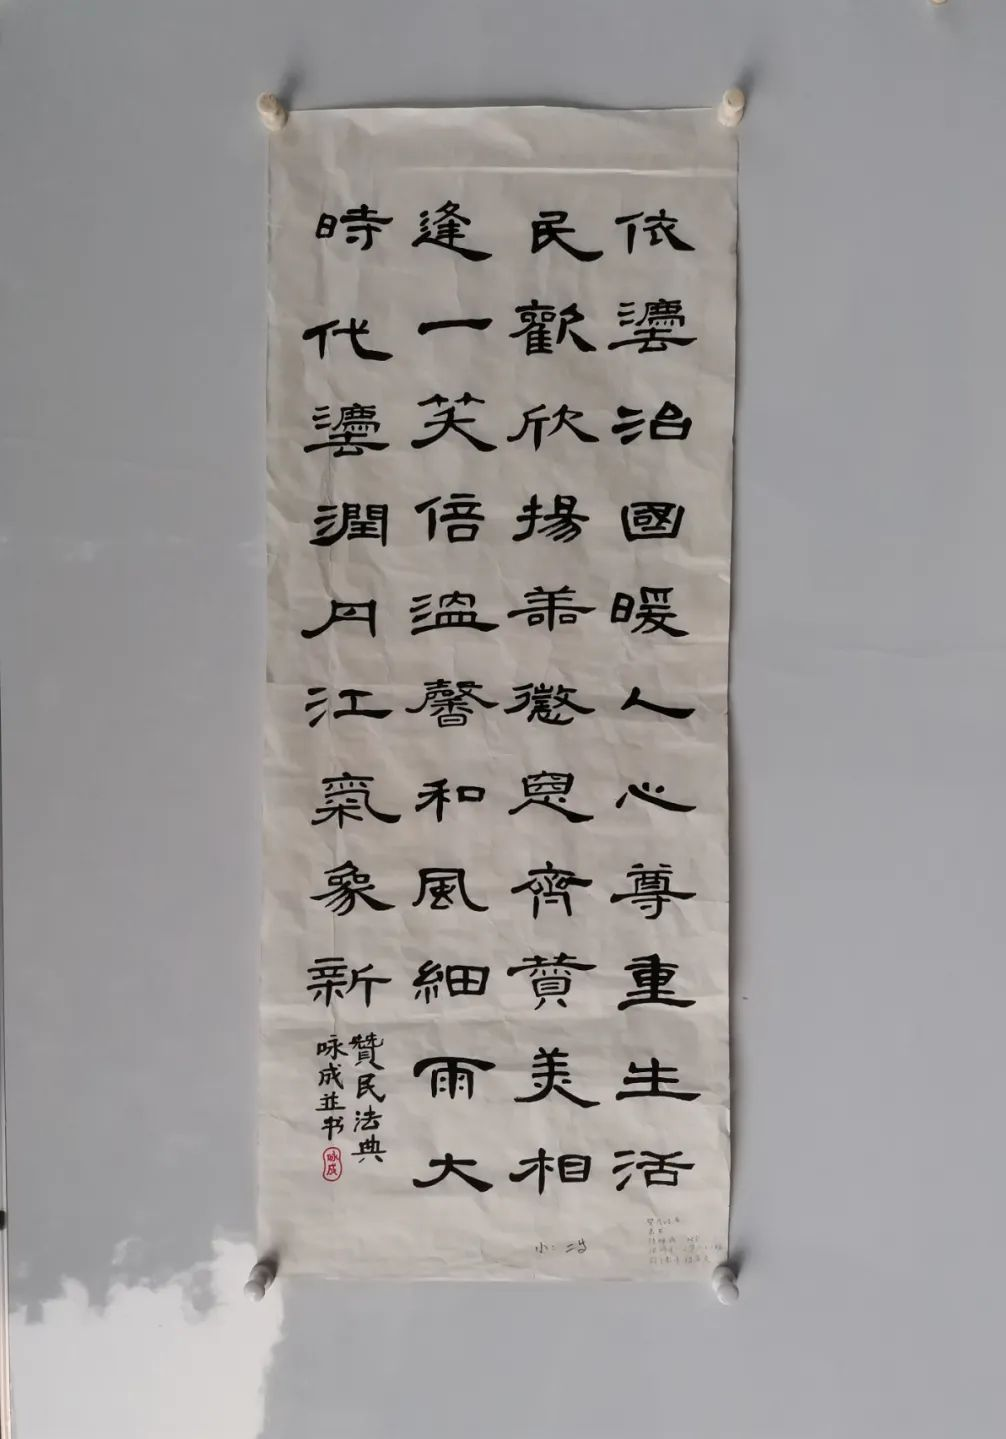 依灋治國暖人心尊重生活
民歡欣揚善懲惡齊贊美相
逢一笑倍溫馨和風細雨大
時代灋潤丹江氣象新
贊民法典
咏成並书
咏成